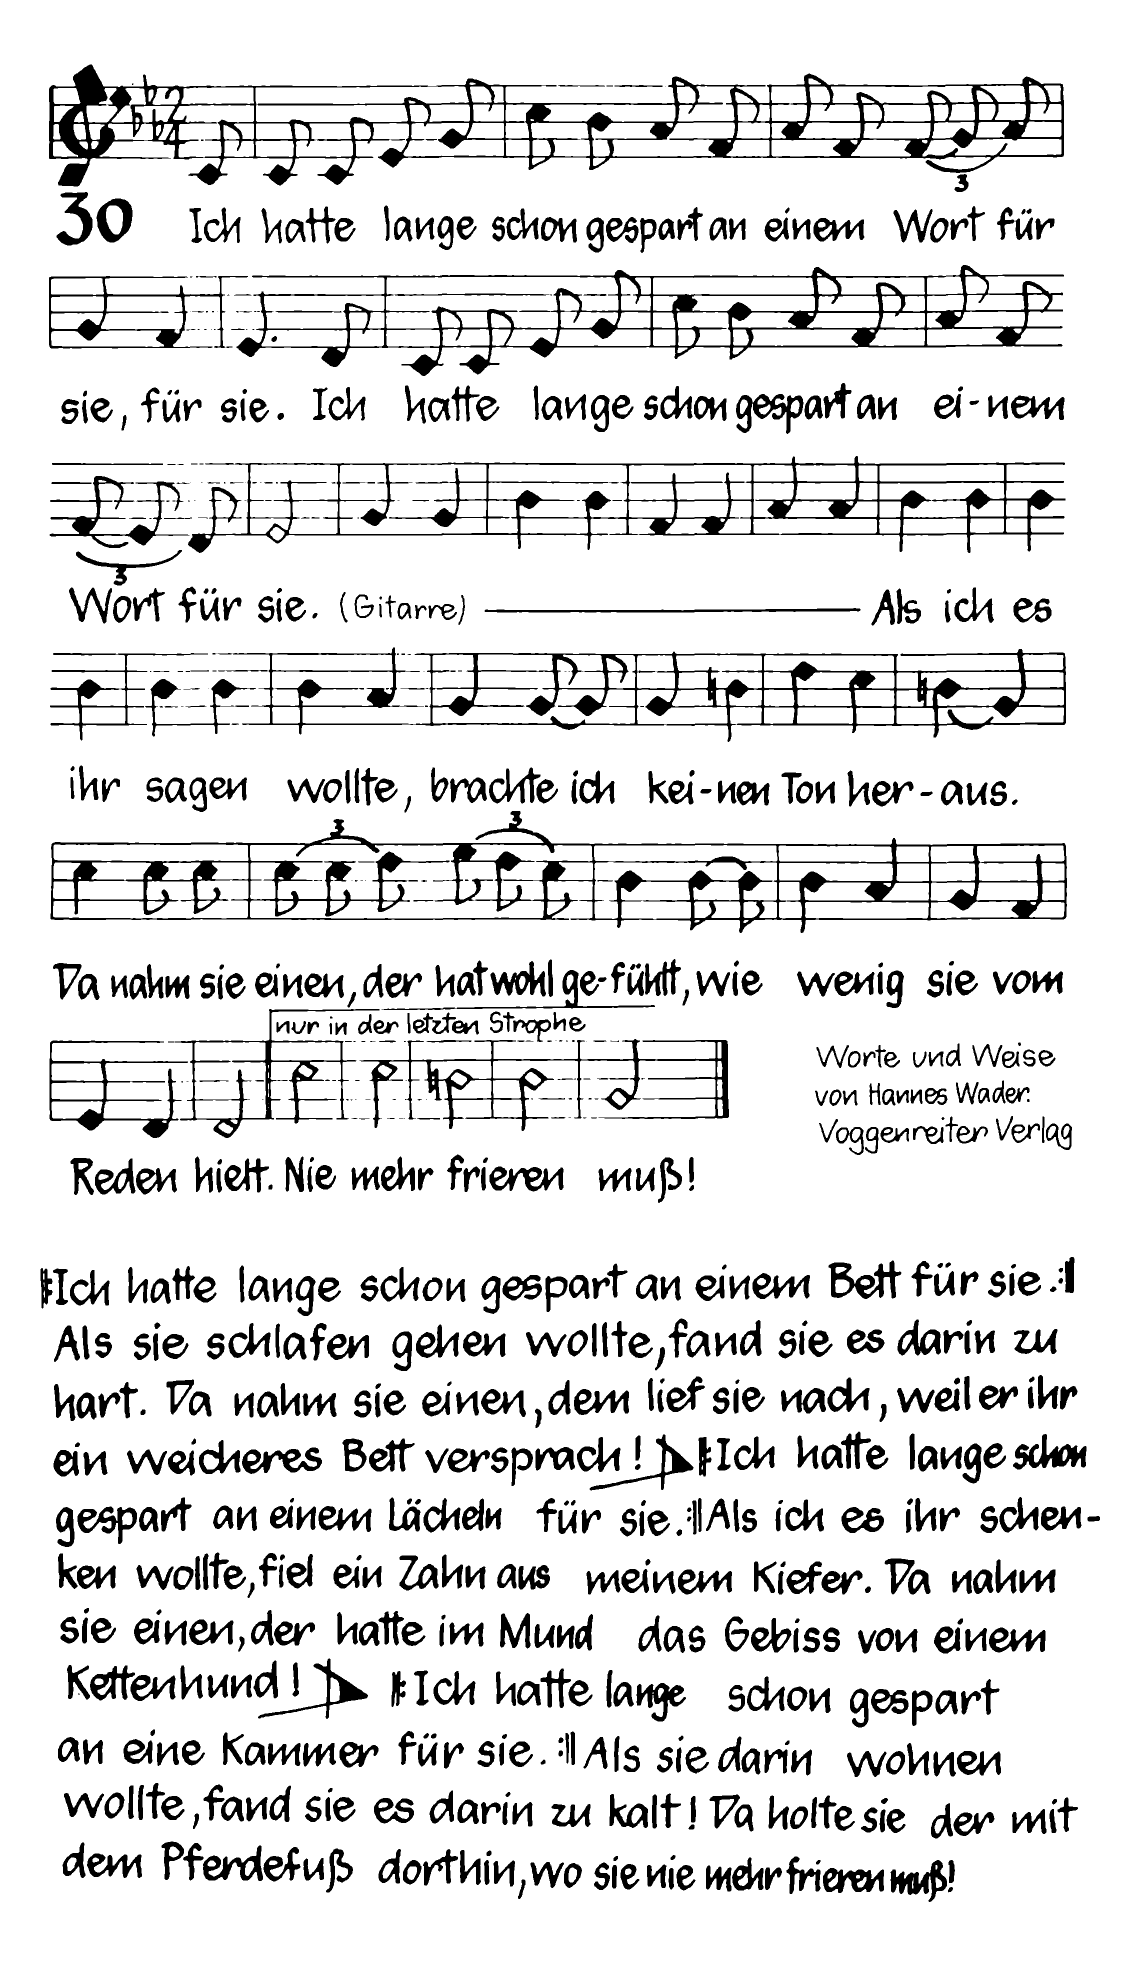 2
4
3
30
Ich hatte lange schon gespart an einem Wort für
sie, für sie. Ich hatte lange schon gespart an ei-nem
3
Wort für sie. (Gitarre) Als ich es
ihr sagen wollte, brachte ich kei-nen Ton her-aus.
3 3
Da nahm sie einen, der hat wohl ge-fühlt, wie wenig sie vom
nur in der letzten Strophe
Worte und Weise
von Hannes Wader.
Voggenreiter Verlag
Reden hielt. Nie mehr frieren muß!
Ich hatte lange schon gespart an einem Bett für sie.:
Als sie schlafen gehen wollte, fand sie es darin zu
hart. Da nahm sie einen, dem lief sie nach, weil er ihr
ein weicheres Bett versprach! Ich hatte lange schon
gespart an einem Lächeln für sie. Als ich es ihr schen-
ken wollte, fiel ein Zahn aus meinem Kiefer. Da nahm
sie einen, der hatte im Mund das Gebiss von einem
Kettenhund! Ich hatte lange schon gespart
an eine Kammer für sie. Als sie darin wohnen
wollte, fand sie es darin zu kalt! Da holte sie der mit
dem Pferdefuß dorthin, wo sie nie mehr frieren muß!